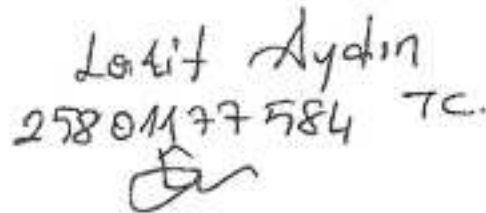 Latif Aydın
25801177584 TC.